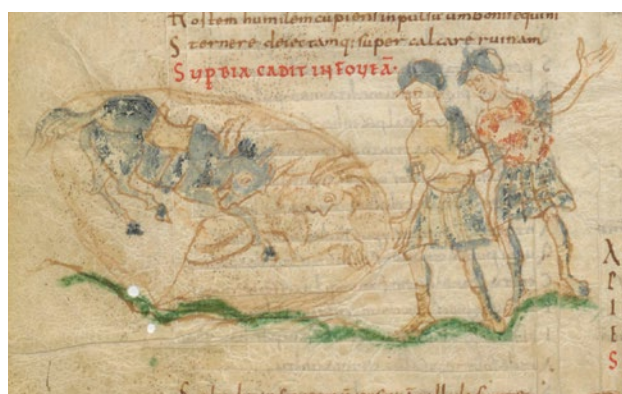 hostem humilem cupiens inpulsu umbonis equini
Sternere deiectamq; super calcare ruinam
SUPBIA CADIT IN FOVEĀ.